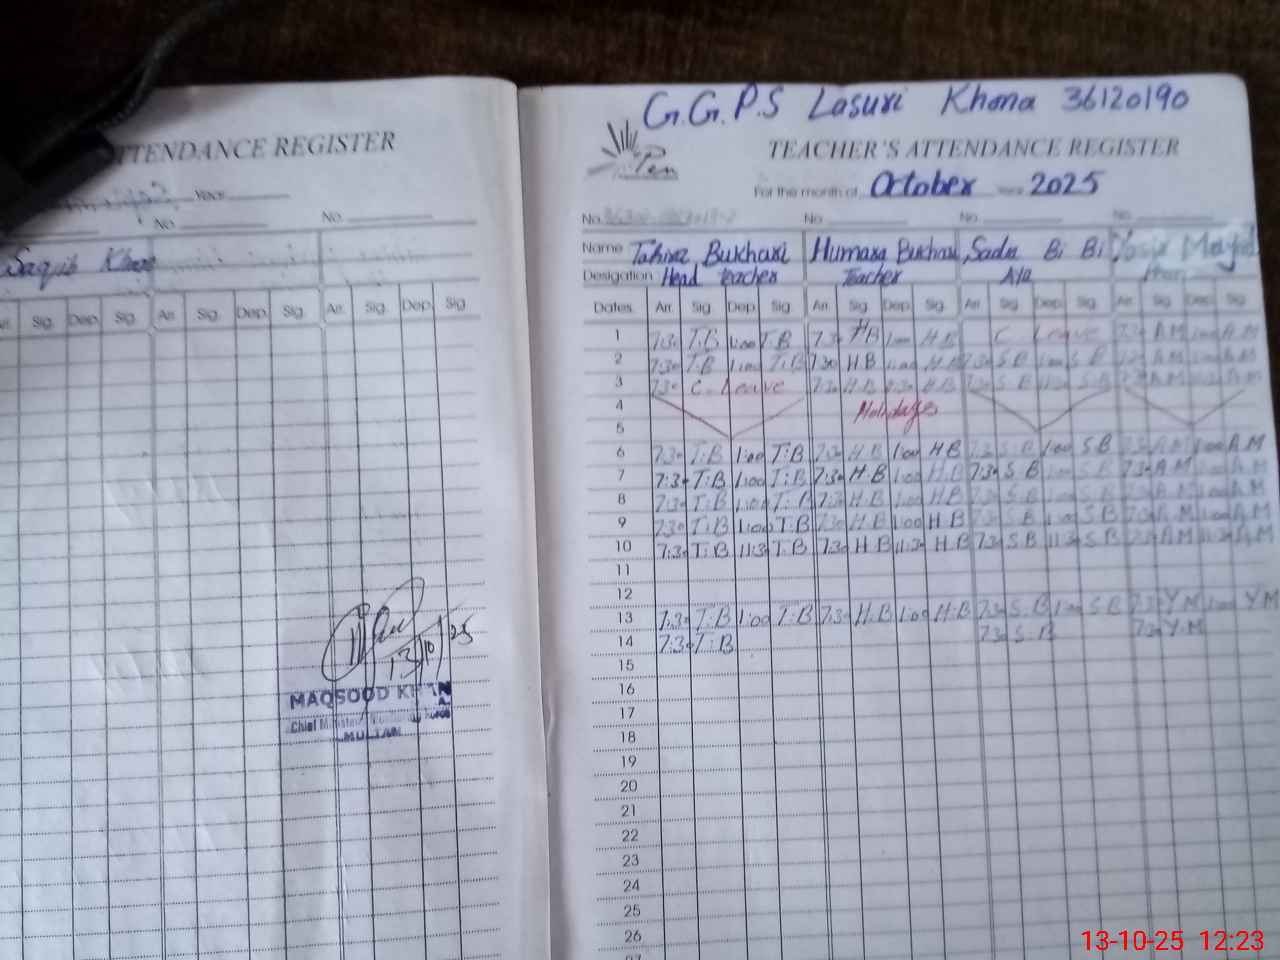 ATTENDANCE REGISTER
Year
No.
No.
Saqib Khan
Arr. Sig. Dep. Sig. Arr. Sig. Dep. Sig. Arr. Sig. Dep. Sig.
13/10/25
MAQSOOD KHAN
Chief Minister
MULTAN
G.G.P.S Lasuri Khona 36120190
Pen
TEACHER'S ATTENDANCE REGISTER
For the month of October Year 2025
No. No. No. No.
Name Tahira Bukhari Humara Bukhari Sadu Bi Bi Yasir Majid
Desigation Head teacher Teacher A/a
Dates Arr. Sig. Dep. Sig. Arr. Sig. Dep. Sig. Arr. Sig. Dep. Sig. Arr. Sig. Dep. Sig.
1 7:30 T:B 1:00 T:B 7:30 H B 1:00 H B C Leave 7:30 A.M 1:00 A.M
2 7:30 T:B 1:00 T:B 7:30 H B 1:00 H B 7:30 S B 1:00 S B 7:30 A M 1:00 A M
3 7:30 C. Leave 7:30 H B 11:30 H B 7:30 S B 11:30 S.B 7:30 A M 11:30 A M
4 Holidays
5
6 7:30 T:B 1:00 T:B 7:30 H B 1:00 H B 7:30 S.B 1:00 S B 7:30 A.M 1:00 A.M
7 7:30 T:B 1:00 T:B 7:30 H.B 1:00 H.B 7:30 S B 1:00 S B 7:30 A M 1:00 A.M
8 7:30 T:B 1:00 T:B 7:30 H B 1:00 H B 7:30 S B 1:00 S B 7:30 A M 1:00 A M
9 7:30 T:B 1:00 T.B 7:30 H B 1:00 H B 7:30 S B 1:00 S B 7:30 A M 1:00 A M
10 7:30 T:B 11:30 T.B 7:30 H B 11:30 H B 7:30 S B 11:30 S B 7:30 A M 11:30 A M
11
12
13 7:30 T:B 1:00 T:B 7:30 H.B 1:00 H.B 7:30 S.B 1:00 S B 7:30 Y M 1:00 Y M
14 7:30 T:B 7:30 S.B 7:30 Y.M
15
16
17
18
19
20
21
22
23
24
25
26
27
13-10-25 12:23